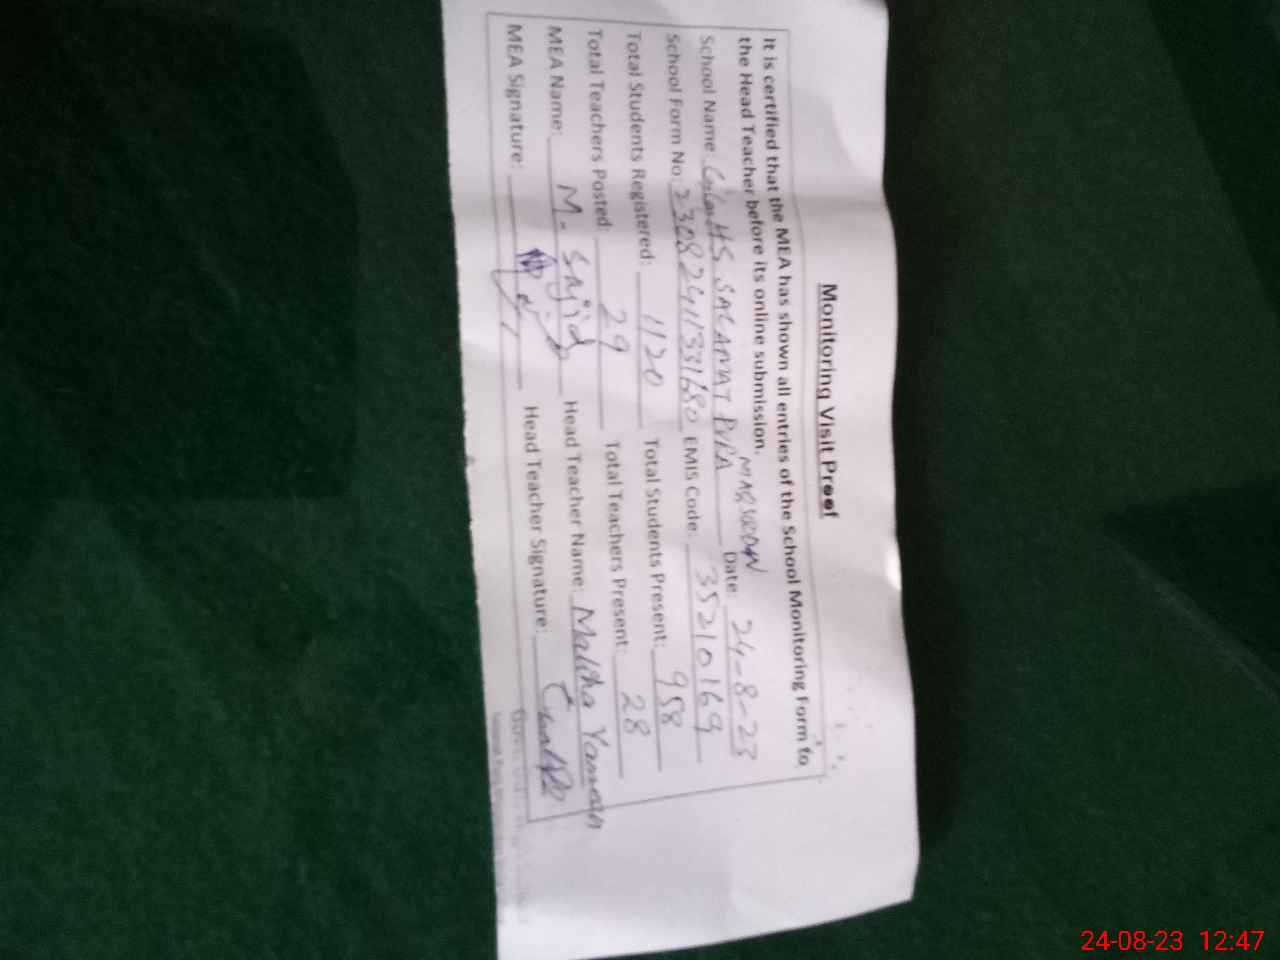 Monitoring Visit Proof
It is certified that the MEA has shown all entries of the School Monitoring Form to
the Head Teacher before its online submission.
School Name: HS SALAMAT PURA Date: 24-8-23
School Form No: EMIS Code: 35210169
Total Students Registered: 1120 Total Students Present: 958
Total Teachers Posted: 29 Total Teachers Present: 28
MEA Name: M. Sajid Head Teacher Name: Maliha Yamean
MEA Signature: Head Teacher Signature:
24-08-23 12:47